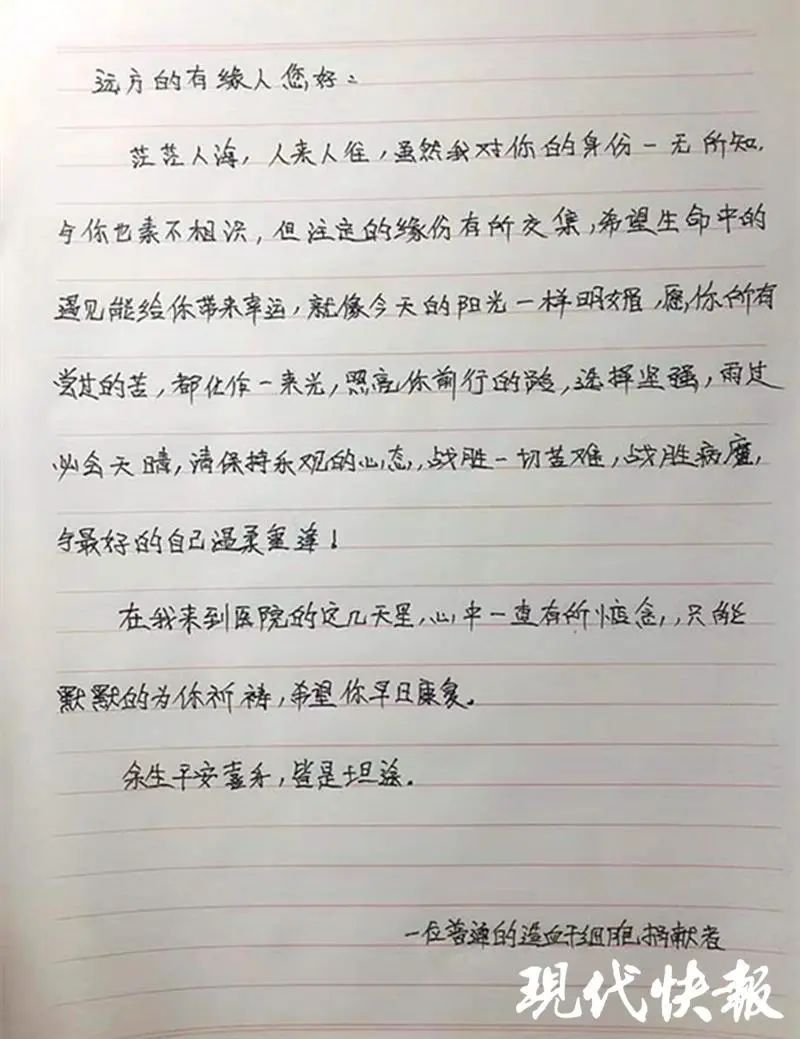 远方的有缘人您好：
茫茫人海，人来人往，虽然我对你的身份一无所知，
与你也素不相识，但注定的缘份有所交集，希望生命中的
遇见能给你带来幸运，就像今天的阳光一样明媚，愿你所有
尝过的苦，都化作一束光，照亮你前行的路，选择坚强，雨过
必会天晴，请保持乐观的心态，战胜一切苦难，战胜病魔，
与最好的自己温柔重逢！
在我来到医院的这几天里，心中一直有所惦念，，只能
默默的为你祈祷，希望你早日康复。
余生平安喜乐，皆是坦途。
一位普通的造血干细胞捐献者
现代快报